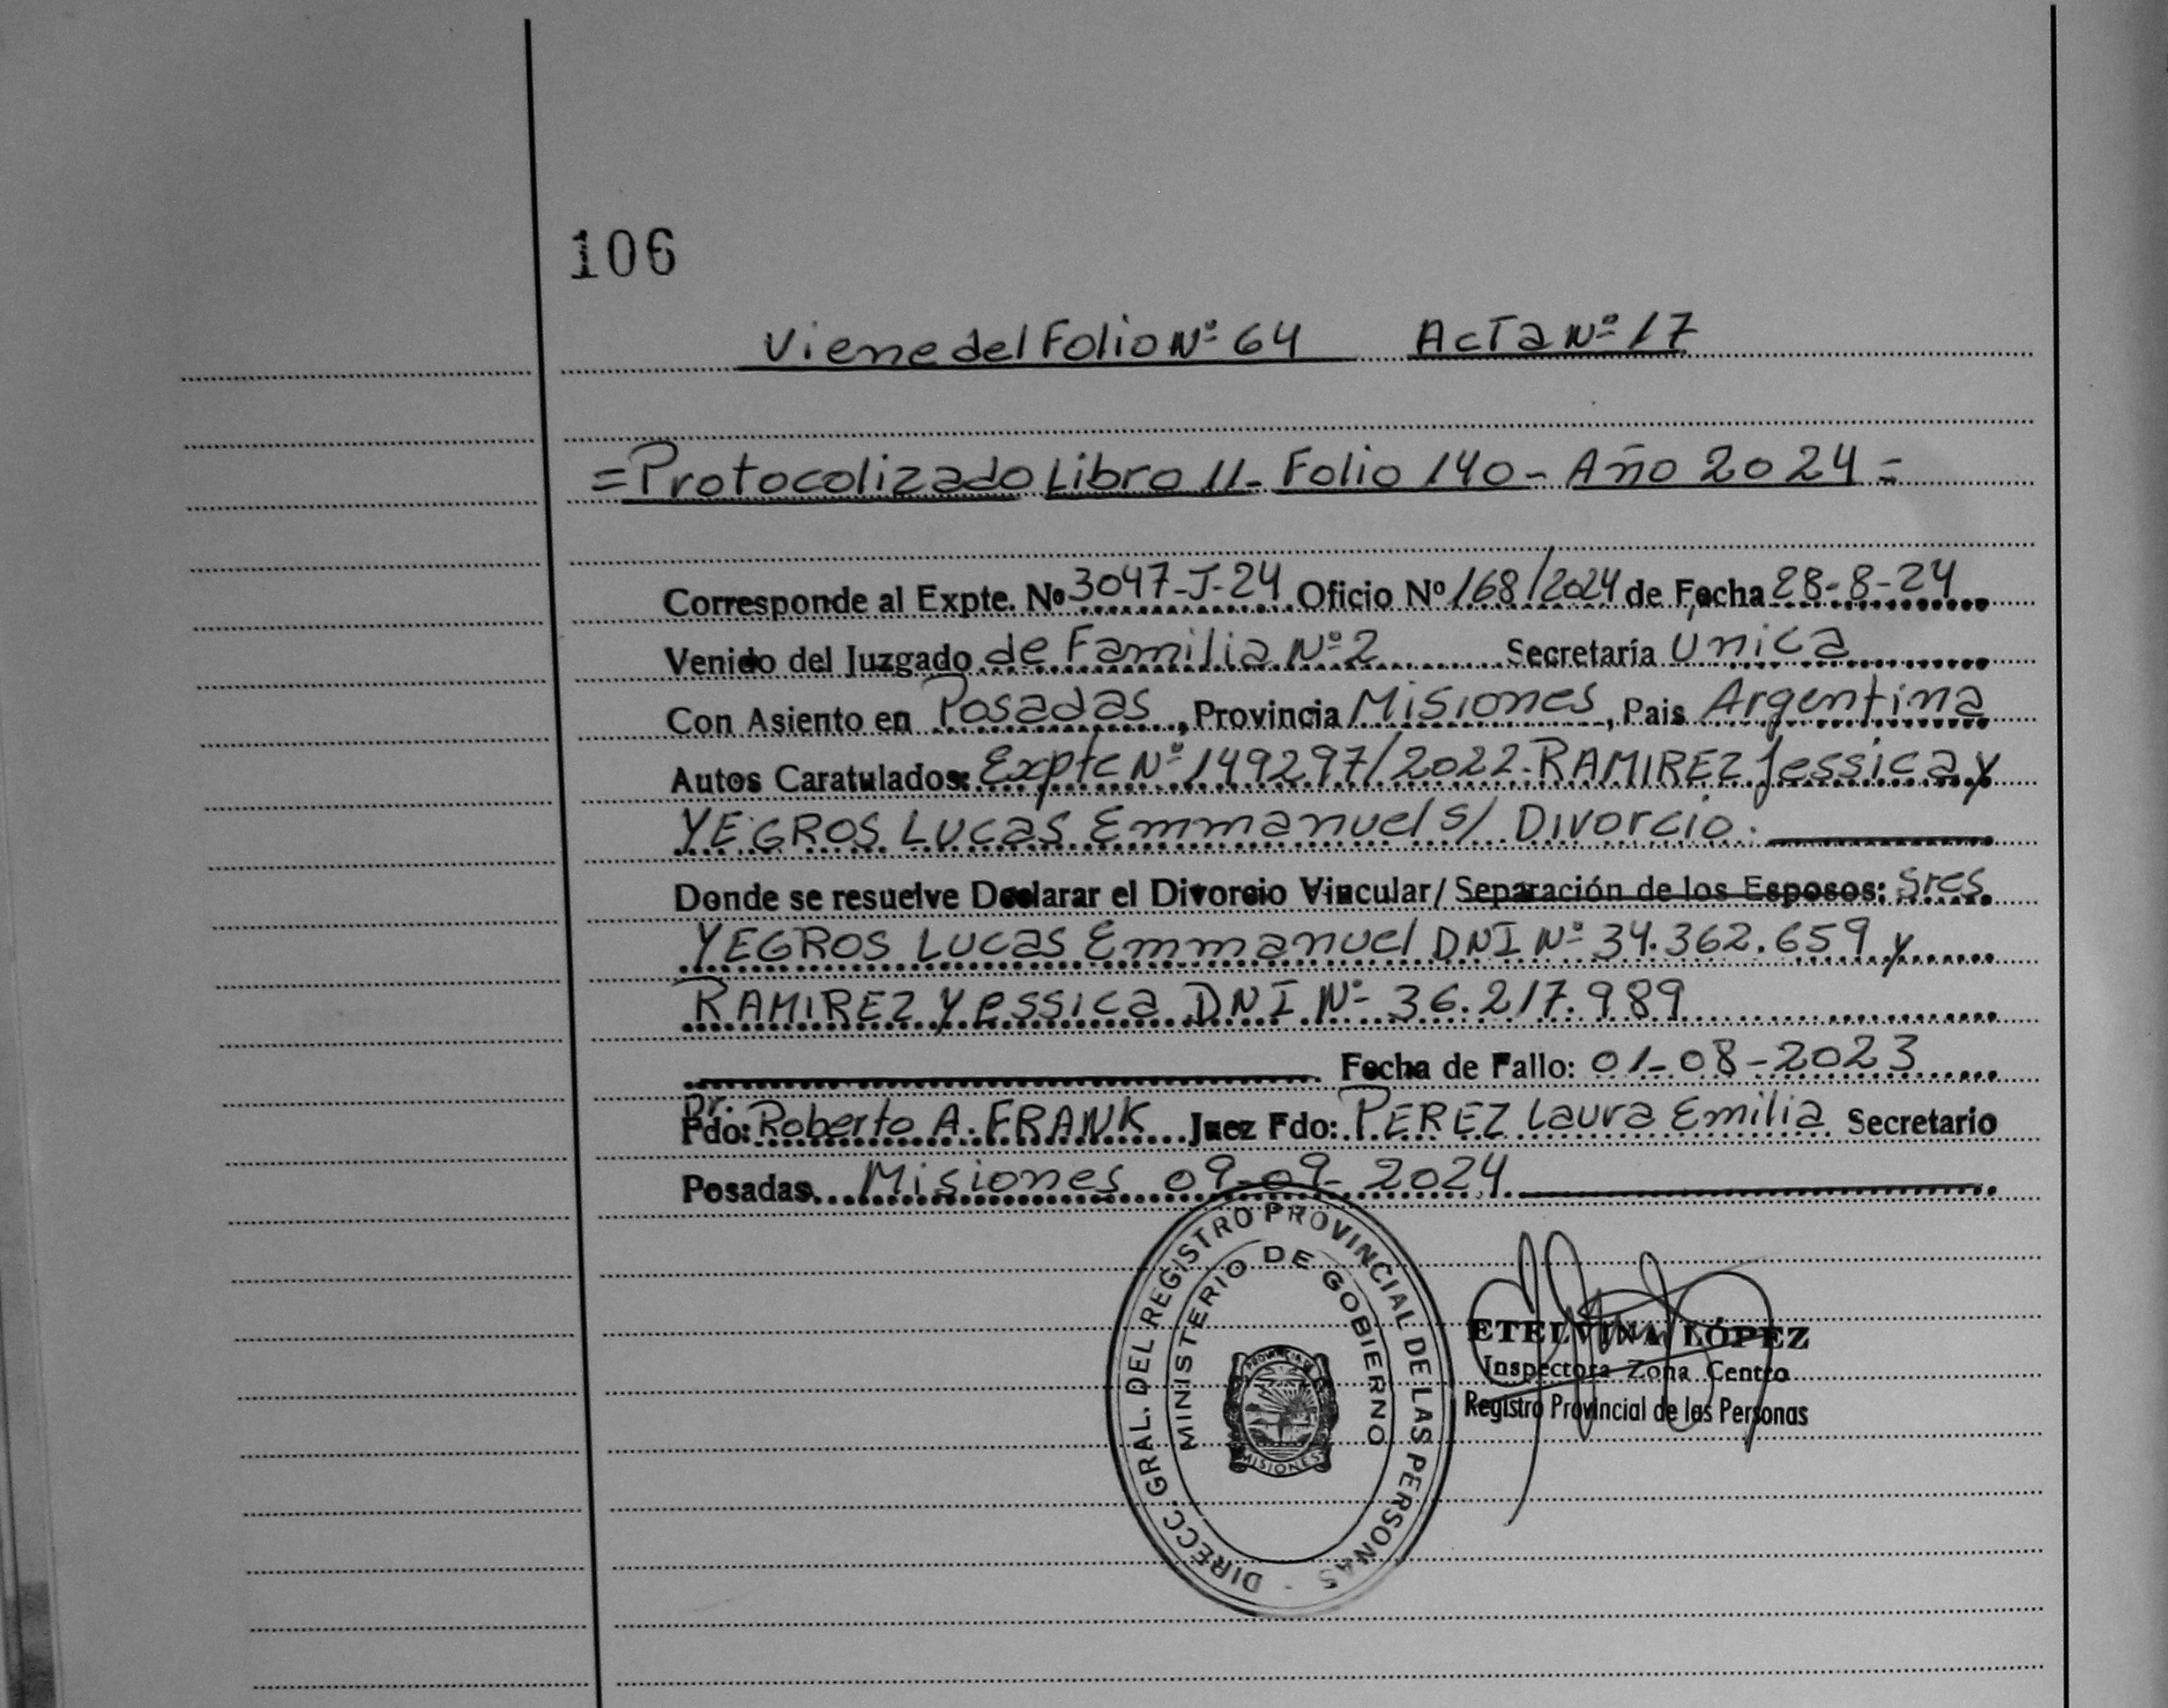 106
Viene del Folio Nº 64 Acta Nº 17
=Protocolizado Libro 11- Folio 140- Año 2024=
Corresponde al Expte. Nº 3047-J-24 Oficio Nº 168/2024 de Fecha 28-8-24
Venido del Juzgado de Familia Nº 2 Secretaría Unica
Con Asiento en Posadas, Provincia Misiones, Pais Argentina
Autos Caratulados: Expte Nº 149297/2022-RAMIREZ Jessica y
YEGROS Lucas Emmanuel s/ Divorcio.
Donde se resuelve Declarar el Divorcio Vincular/ Separación de los Esposos: Sres
YEGROS Lucas Emmanuel DNI Nº 34.362.659 y
RAMIREZ Yessica DNI Nº 36.217.989
Fecha de Fallo: 01-08-2023
Dr.
Fdo: Roberto A. FRANK Juez Fdo: PEREZ Laura Emilia Secretario
Posadas Misiones 09-09-2024
DIRECC. GRAL. DEL REGISTRO PROVINCIAL DE LAS PERSONAS -
MINISTERIO DE GOBIERNO
PROVINCIA DE
MISIONES
ETELVINA LÓPEZ
Inspectora Zona Centro
Registro Provincial de las Personas